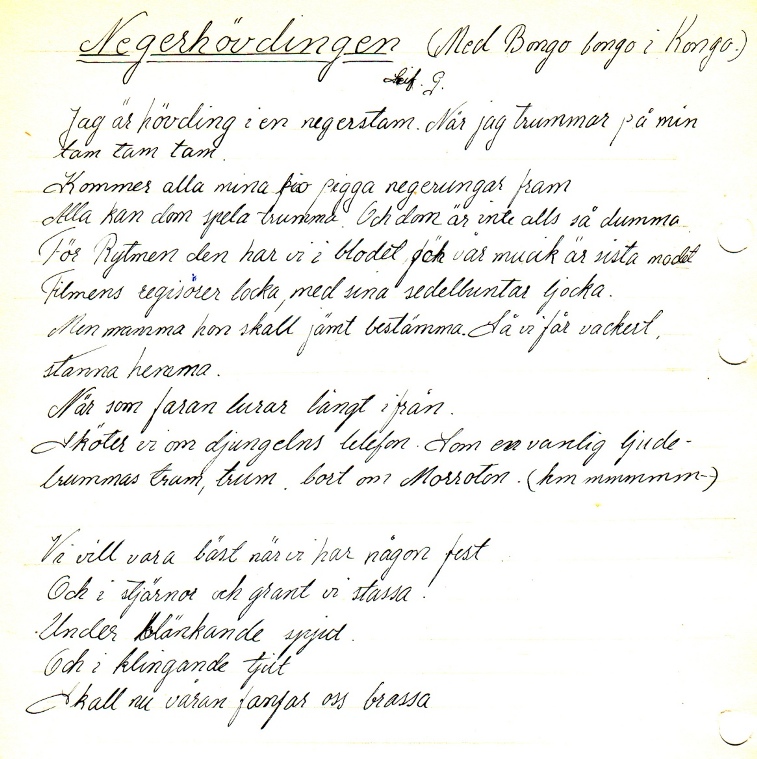 Negerhövdingen (Med Bongo bongo i Kongo.)
Leif. G.
Jag är hövding i en negerstam. När jag trummar på min
tam tam tam.
Kommer alla mina pigga negerungar fram
Alla kan dom spela trumma. Och dom är inte alls så dumma
För Rytmen den har vi i blodet, och vår musik är sista modet
Filmens regisörer locka, med sina sedelbuntar tjocka.
Men mamma hon skall jämt bestämma. Så vi får vackert,
stanna hemma.
När som faran lurar långt ifrån.
Sköter vi om djungelns telefon. Som en vanlig ljude-
trummas tram, trum. bort om Morroton. (hm mmmmm-)
Vi vill vara bäst när vi har någon fest
Och i stjärnor och grant vi stassa.
Under blänkande spjut.
Och i klingande tjut
Skall nu våran fanfar oss brassa